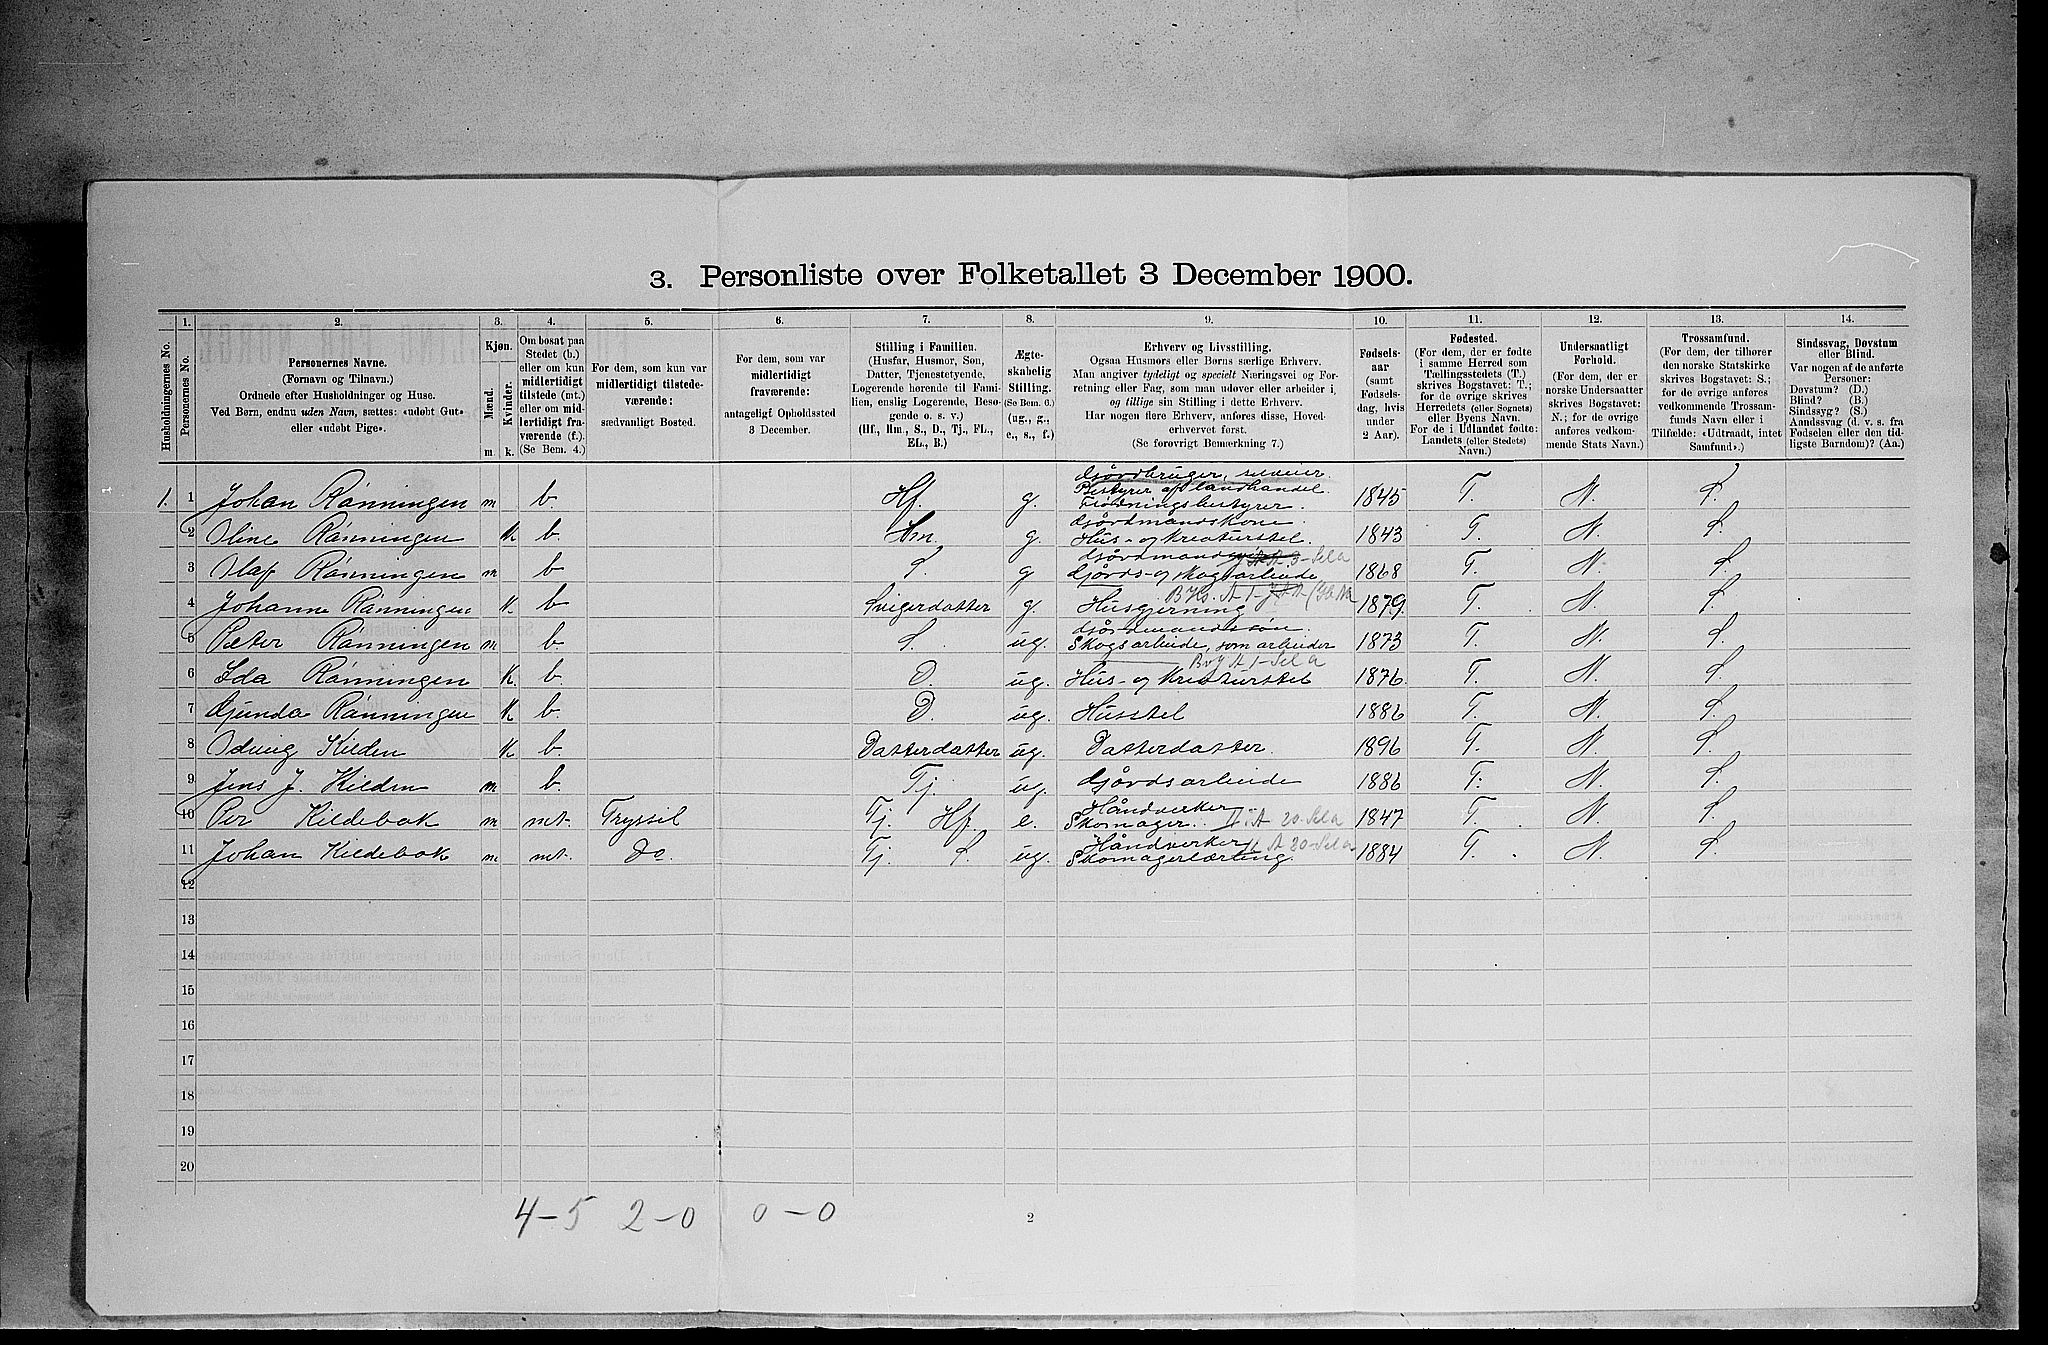 3. Personliste over Folketallet 3 December 1900.
1. 2. 3. 4. 5. 6. 7. 8. 9. 10. 11. 12. 13. 14.
Husholdningernes No.
Personernes No.
Personernes Navne.
(Fornavn og Tilnavn.)
Ordnede efter Husholdninger og Huse.
Ved Børn, endnu uden Navn, sættes: «udøbt Gut»
eller «udøbt Pige».
Kjøn.
Mænd.
Kvinder.
m. k.
Om bosat paa
Stedet (b.)
eller om kun
midlertidigt
tilstede (mt.)
eller om mid-
lertidigt fra-
værende (f.).
(Se Bem. 4.)
For dem, som kun var
midlertidigt tilstede-
værende:
sædvanligt Bosted.
For dem, som var
midlertidigt
fraværende:
antageligt Opholdssted
3 December.
Stilling i Familien.
(Husfar, Husmor, Søn,
Datter, Tjenestetyende,
Logerende hørende til Fami-
lien, enslig Logerende, Besø-
gende o. s. v.)
(Hf., Hm., S., D., Tj., FL.,
EL., B.)
Ægte-
skabelig
Stilling.
(Se Bem. 6.)
(ug., g.,
e., s., f.)
Erhverv og Livsstilling.
Ogsaa Husmors eller Børns særlige Erhverv.
Man angiver tydeligt og specielt Næringsvei og For-
retning eller Fag, som man udøver eller arbeider i,
og tillige sin Stilling i dette Erhverv.
Har nogen flere Erhverv, anføres disse, Hoved-
erhvervet først.
(Se forøvrigt Bemærkning 7.)
Fødsels-
aar
(samt
Fødsels-
dag, hvis
under
2 Aar).
Fødested.
(For dem, der er fødte
i samme Herred som
Tællingsstedets (T.)
skrives Bogstavet: T.;
for de øvrige skrives
Herredets (eller Sognets)
eller Byens Navn.
For de i Udlandet fødte:
Landets (eller Stedets)
Navn.)
Undersaatligt
Forhold.
(For dem, der er
norske Undersaatter
skrives Bogstavet:
N.; for de øvrige
anføres vedkom-
mende Stats Navn.)
Trossamfund.
(For dem, der tilhører
den norske Statskirke
skrives Bogstavet: S.;
for de øvrige anføres
vedkommende Trossam-
funds Navn eller i
Tilfælde: «Udtraadt, intet
Samfund».)
Sindssvag, Døvstum
eller Blind.
Var nogen af de anførte
Personer:
Døvstum? (D.)
Blind? (B.)
Sindssyg? (S.)
Aandssvag (d. v. s. fra
Fødselen eller den tid-
ligste Barndom)? (Aa.)
Gjårdbruger, selveier.
Bestyrer af landhandel.
1. 1 Johan Rønningen m b. Hf. g. Fløtningsbestyrer. 1845 T. N. S.
Gjårdmandskone.
2 Oline Rønningen K b. Hm. g. Hus- og Kreaturstel. 1843 T. N. S.
3 Olaf Rønningen m b S. g Gjårds- og skogsarbeide 1868 T. N. S.
4 Johanne Rønningen K. b Svigerdatter g. Husgjerning 1879. T. N. S.
Gjårdmandssøn.
5 Peter Rønningen m b. S. ug. Skogsarbeide, som arbeider 1873 T. N. S.
6 Ida Rønningen K. b. D. ug. Hus- og Kreaturstel 1876. T. N. S.
7 Gjunda Rønningen K b. D. ug. Husstel 1886 T. N. S.
8 Odvig Kilden K b. Datterdatter ug. Datterdatter. 1896 T. N. S.
9 Jens J. Kilden m b. Tj. ug. Gjårdsarbeide 1886 T. N. S.
Håndverker
10 Per Kildebak m mt. Tryssil Tj. Hf. e. Skomager. II A 20-Sela 1847 T. N. S.
Håndverker A 20-Sela
11 Johan Kildebak m mt. Do. Tj S. ug. Skomagerlærling. 1884 T. N. S
12
13
14
15
16
17
18
19
20
4-5 2-0 0-0
2